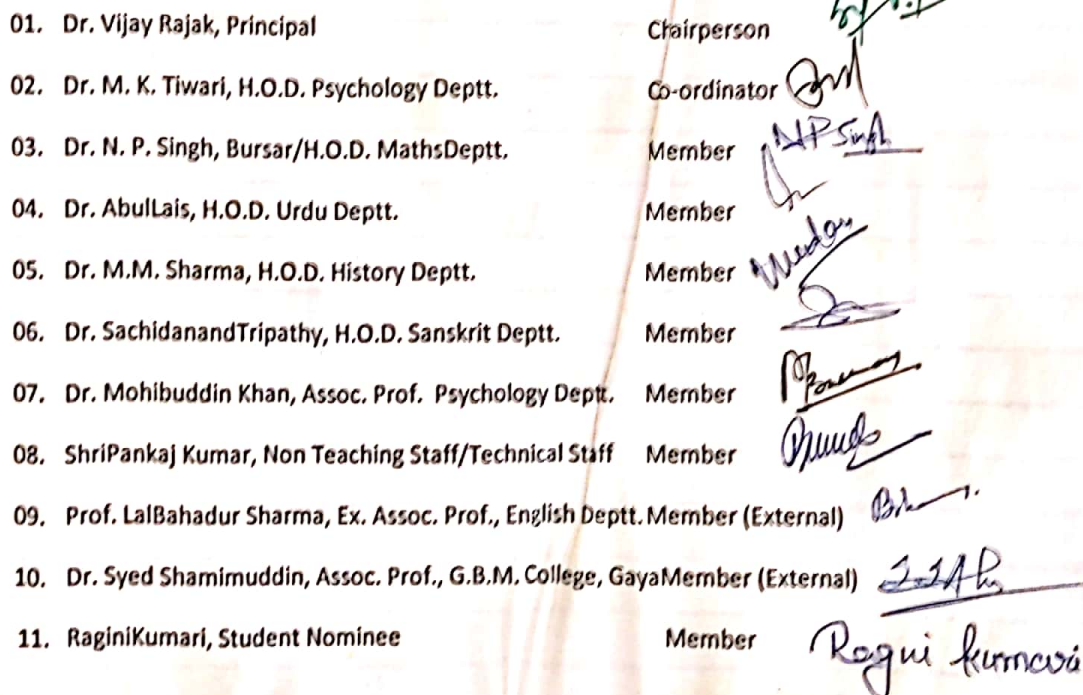 01. Dr. Vijay Rajak, Principal Chairperson
02. Dr. M. K. Tiwari, H.O.D. Psychology Deptt. Co-ordinator
03. Dr. N. P. Singh, Bursar/H.O.D. MathsDeptt. Member NP Singh
04. Dr. AbulLais, H.O.D. Urdu Deptt. Member
05. Dr. M.M. Sharma, H.O.D. History Deptt. Member
06. Dr. SachidanandTripathy, H.O.D. Sanskrit Deptt. Member
07. Dr. Mohibuddin Khan, Assoc. Prof. Psychology Deptt. Member
08. ShriPankaj Kumar, Non Teaching Staff/Technical Staff Member
09. Prof. LalBahadur Sharma, Ex. Assoc. Prof., English Deptt. Member (External)
10. Dr. Syed Shamimuddin, Assoc. Prof., G.B.M. College, GayaMember (External)
11. RaginiKumari, Student Nominee Member Ragni kumari